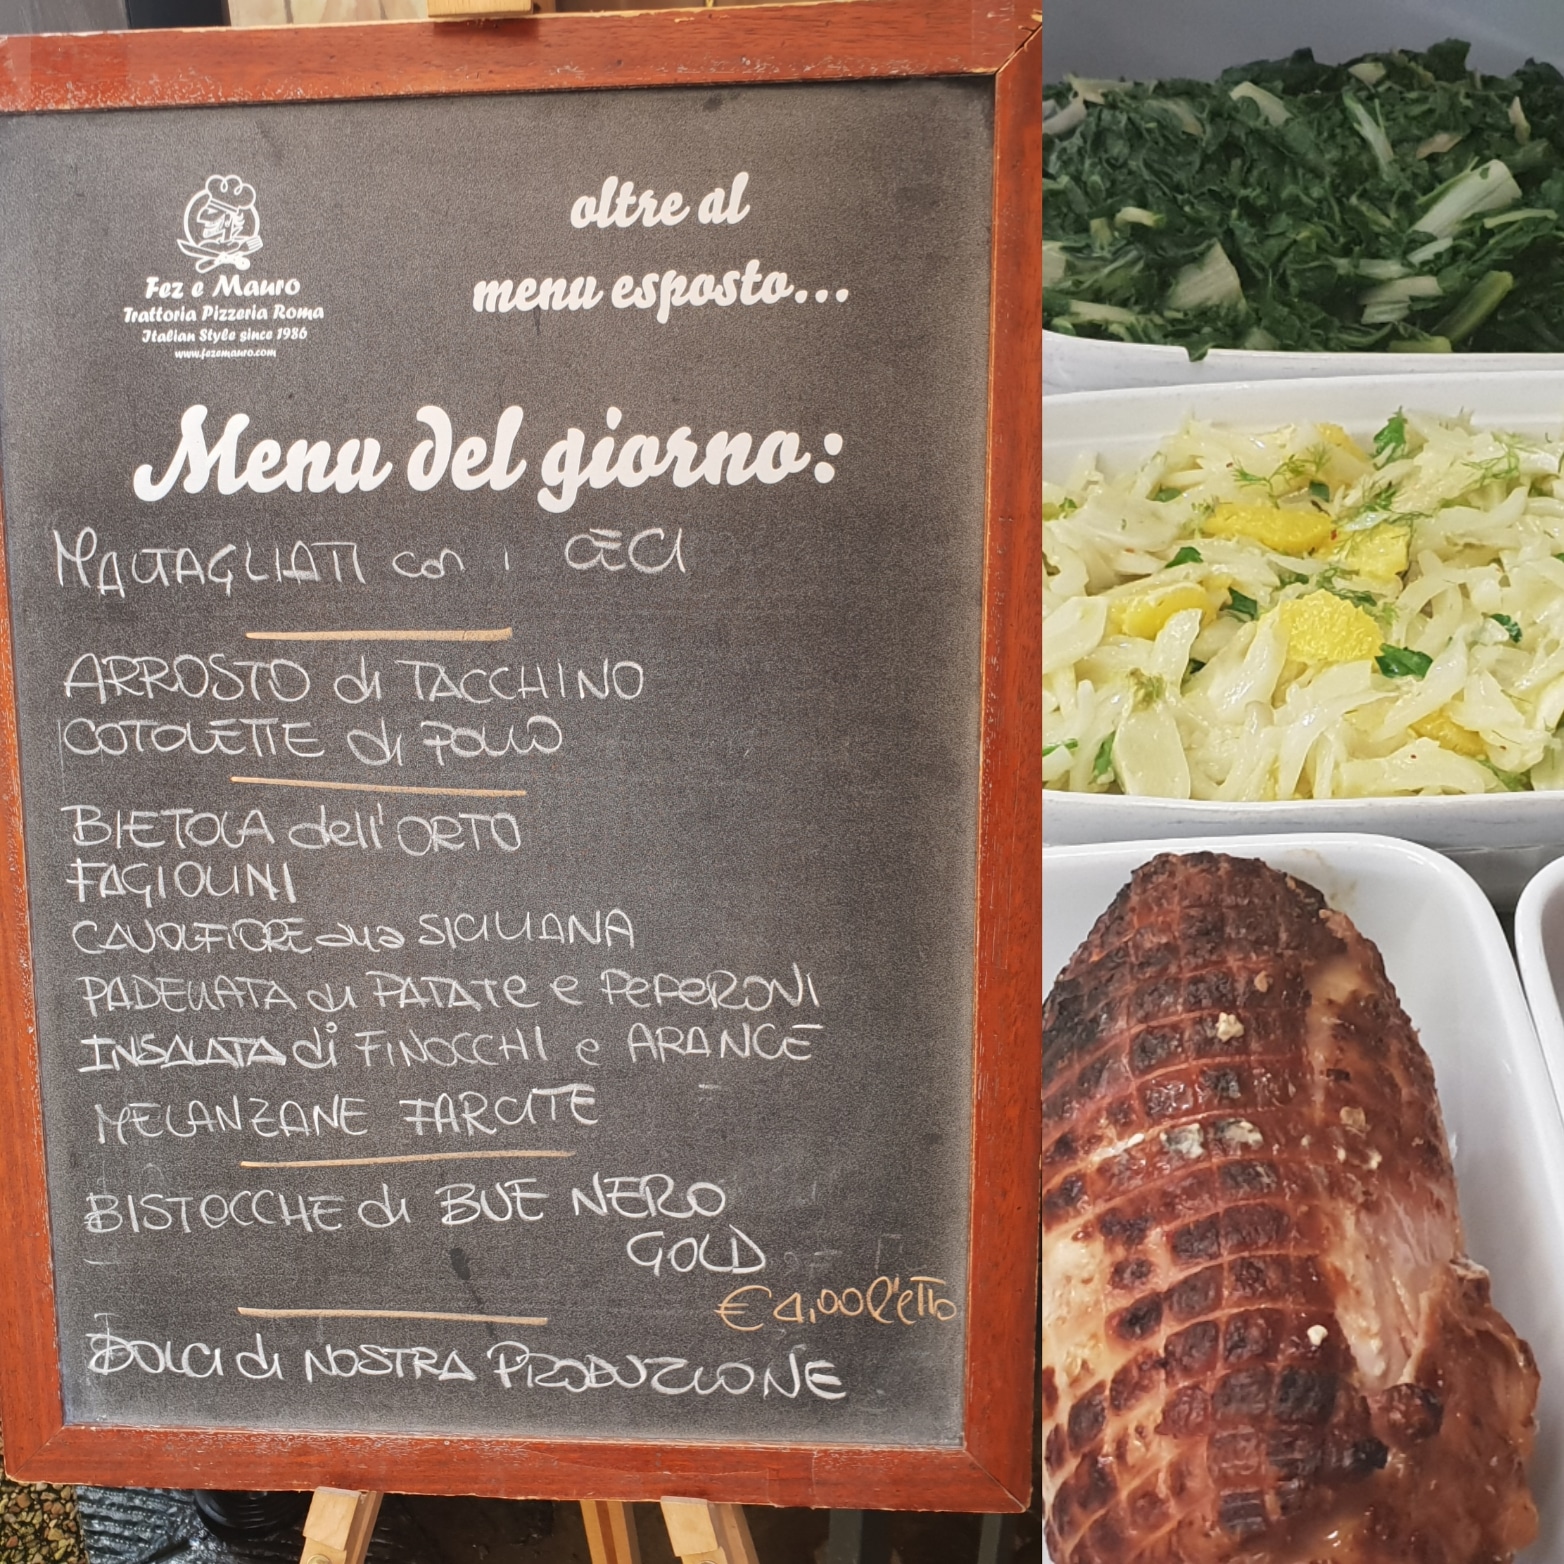 Fez e Mauro
Trattoria Pizzeria Roma
Italian Style since 1986
www.fezemauro.com
oltre al
menu esposto...
Menu del giorno:
MALTAGLIATI con i CECI
ARROSTO di TACCHINO
COTOLETTE di POLLO
BIETOLA dell'ORTO
FAGIOLINI
CAVOLFIORE alla SICILIANA
PADELLATA di PATATE e PEPERONI
INSALATA di FINOCCHI e ARANCE
MELANZANE FARCITE
BISTECCHE di BUE NERO
GOLD
€ 4,00 l'eTTo
DOLCI di NOSTRA PRODUZIONE